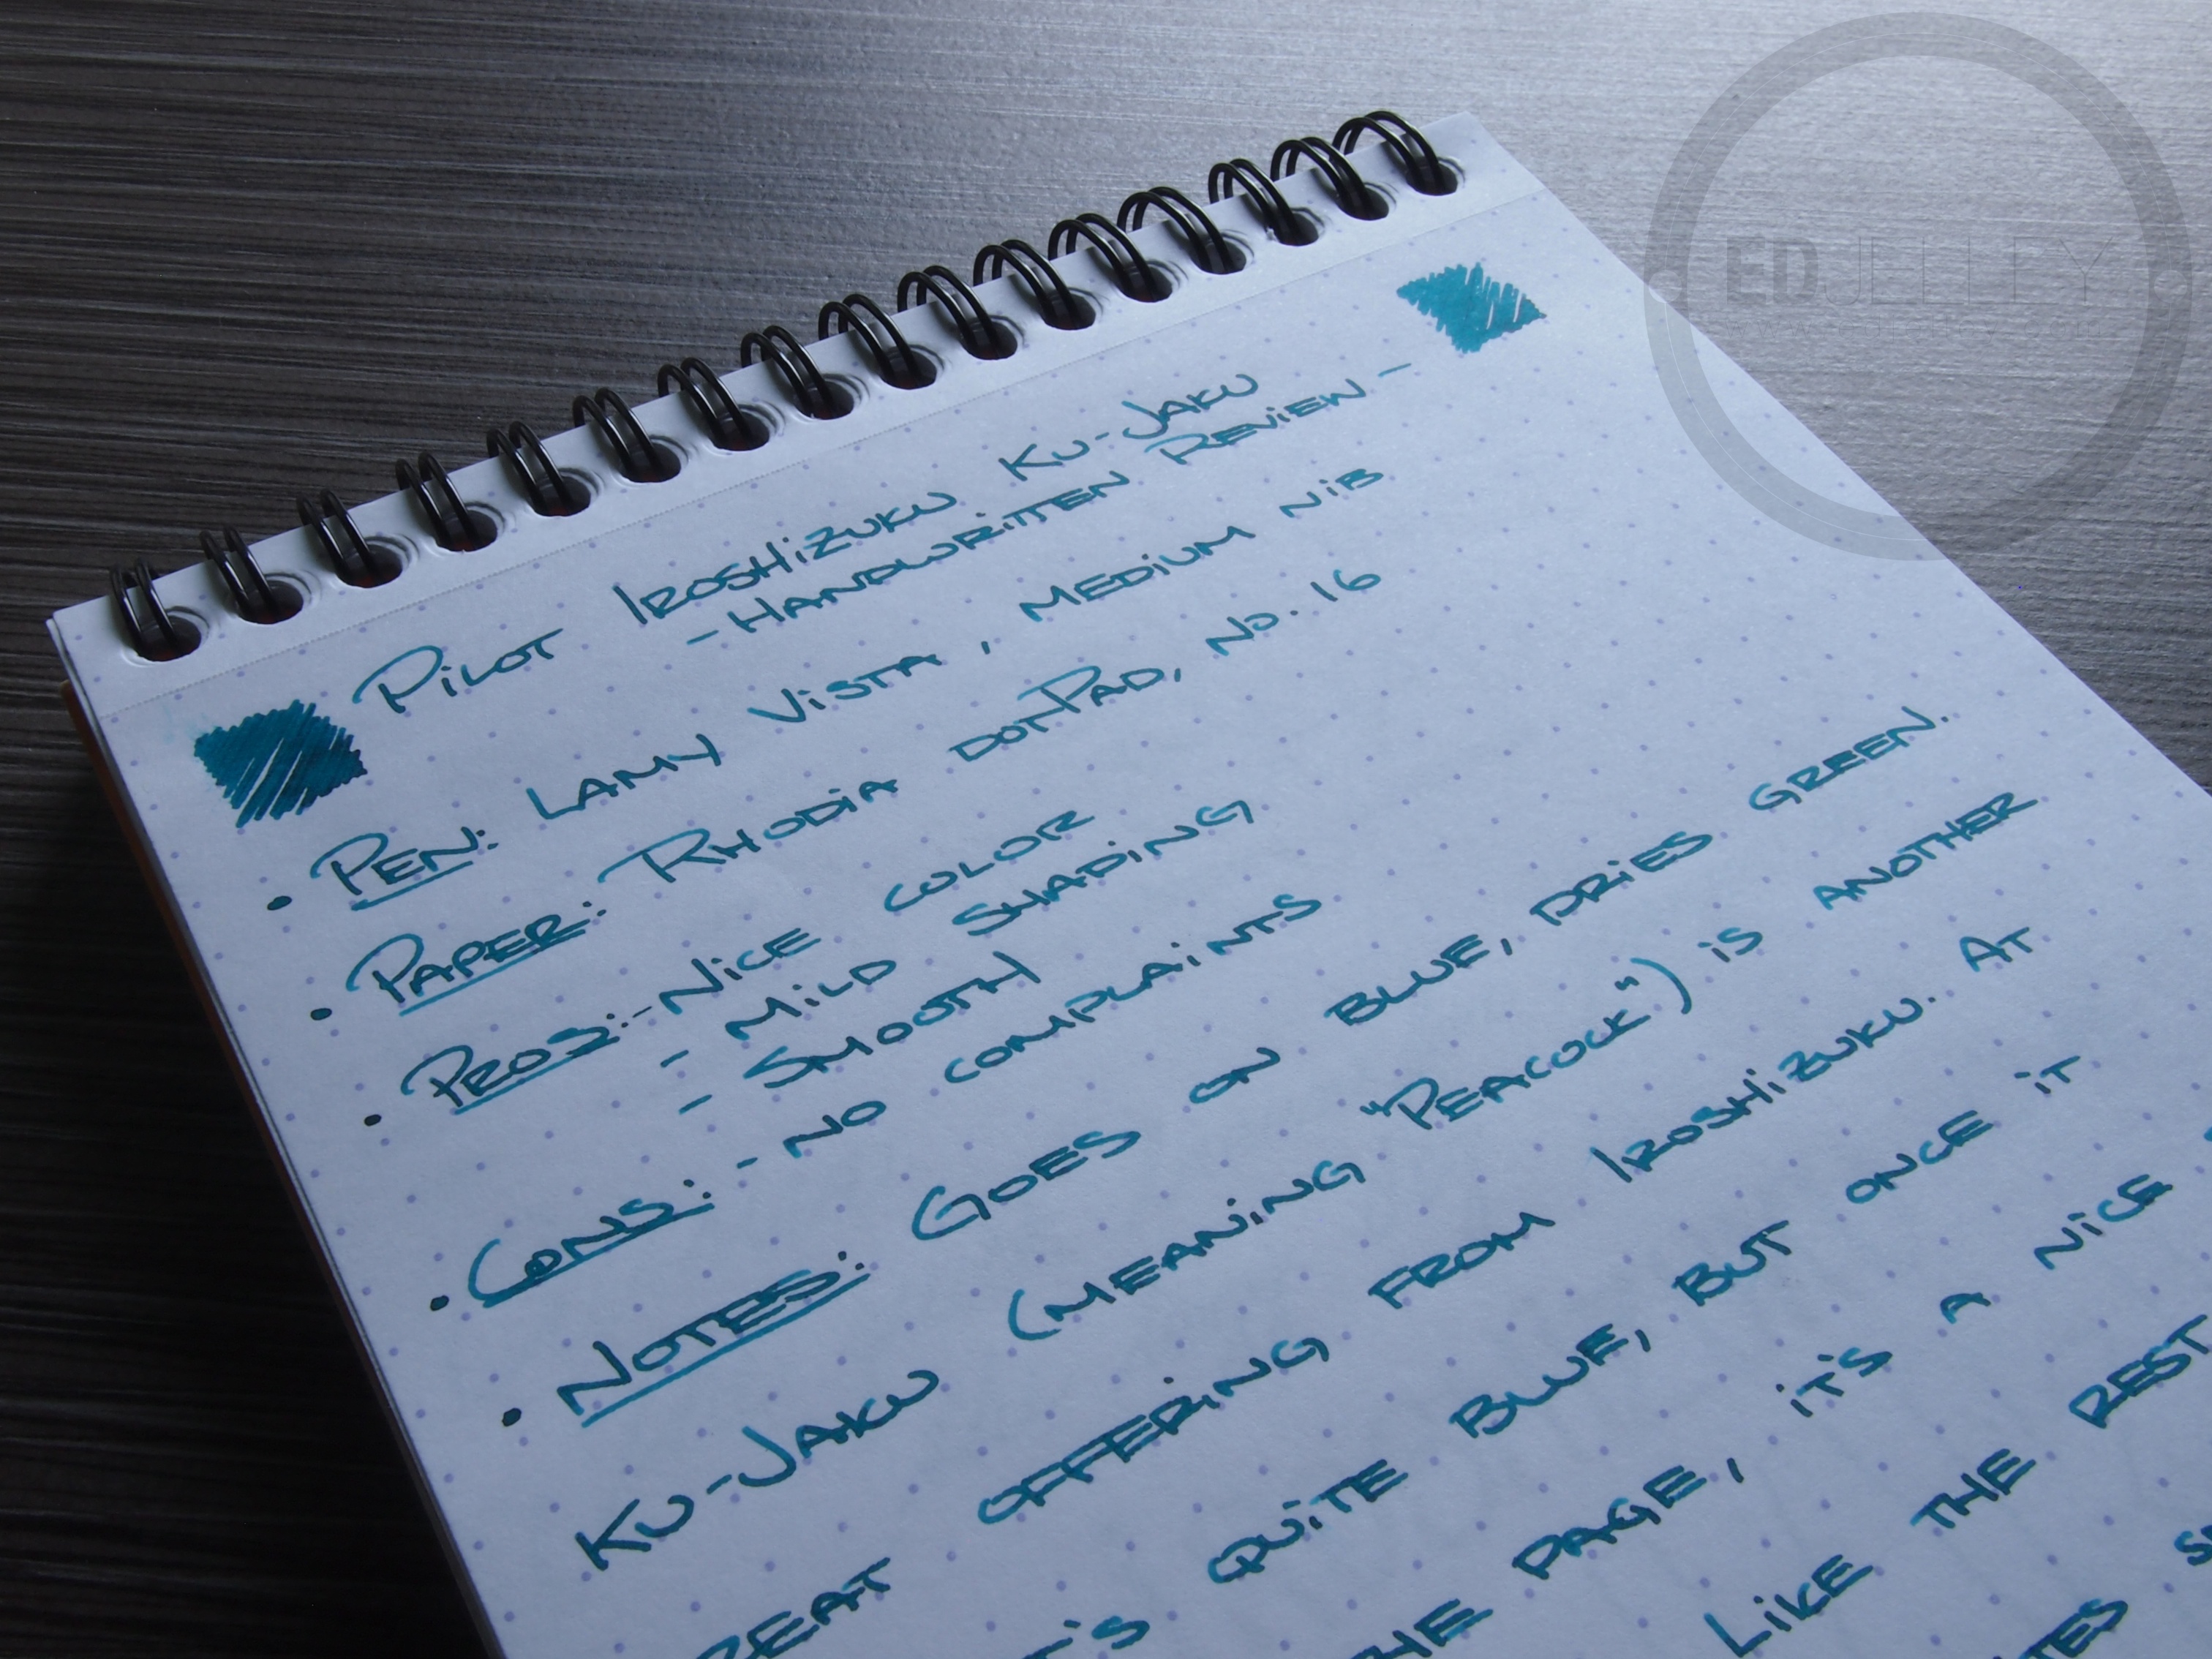 PILOT IROSHIZUKU KU-JAKU
- HANDWRITTEN REVIEW -
• PEN: LAMY VISTA, MEDIUM NIB
• PAPER: RHODIA DOTPAD, NO. 16
• PROS: - NICE COLOR
- MILD SHADING
- SMOOTH
• CONS: - NO COMPLAINTS
• NOTES: GOES ON BLUE, DRIES GREEN.
KU-JAKU (MEANING "PEACOCK") IS ANOTHER
OFFERING FROM IROSHIZUKU. AT
QUITE BLUE, BUT ONCE IT
PAGE, IT'S A NICE
LIKE THE REST
EDJELLEY